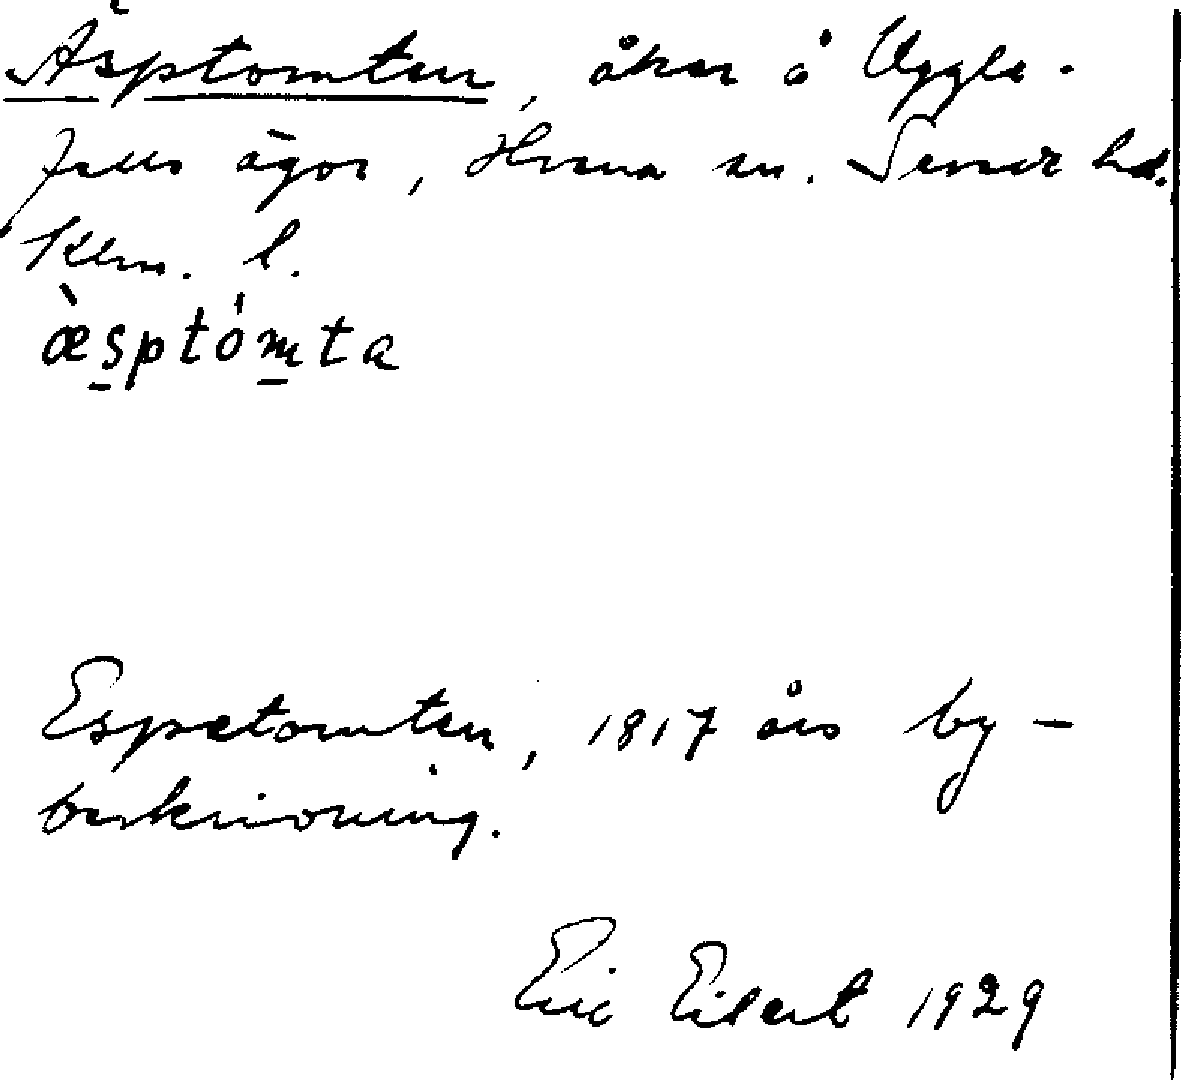 Äsptomten, åker å Uggle-
falls ägor, Horna sn. Sevede hd.
Klm. l.
æ̀sptómta
Espetomten, 1817 års by-
beskrivning.
Eric Eilert 1929